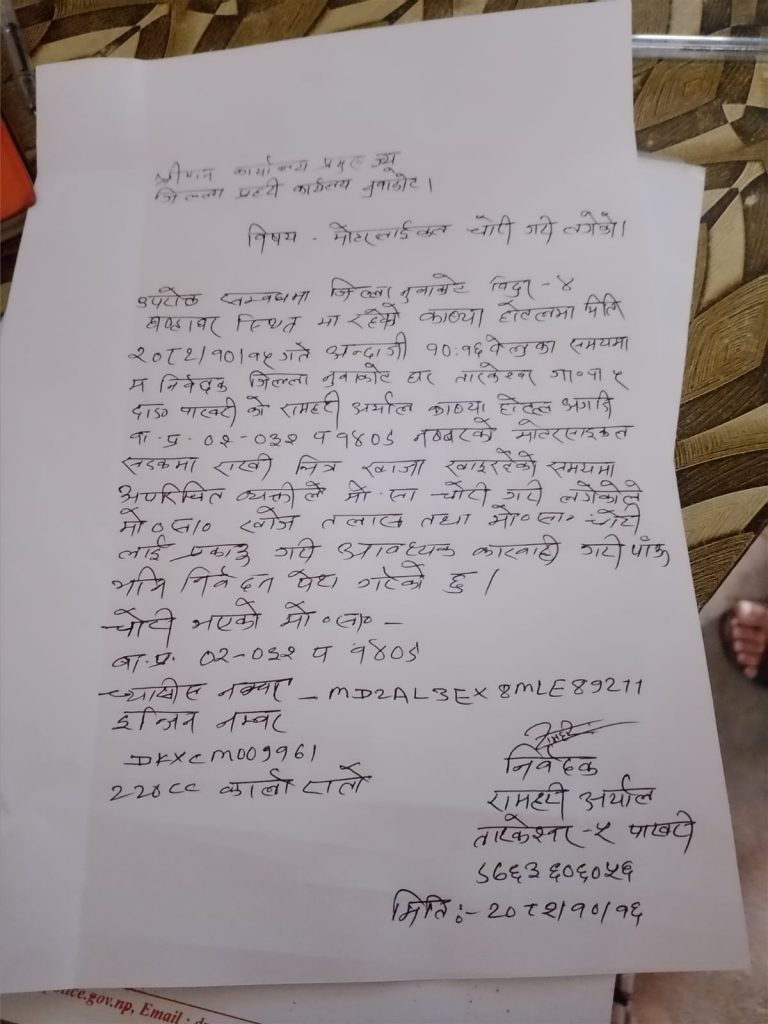 श्रीमान कार्यालय प्रमुख ज्यू
जिल्ला प्रहरी कार्यालय नुवाकोट।
विषय - मोटरसाईकल चोरी गरी लगेको।
उपरोक्त सम्बन्धमा जिल्ला नुवाकोट विदुर -४
स्थित मा रहेको काठ्या होटलमा मिति
२०८२/१०/१५ गते अन्दाजी १०:१६ वेलुका समयमा
म निवेदक जिल्ला नुवाकोट घर तारकेश्वर गा०पा ५
पाखरी को रामहरी अर्याल काठ्या होटल अगाडि
बा.प्र. ०२-०३२ प १४०९ नम्बरको मोटरसाइकल
सडकमा राखी भित्र खाजा खाइरहेको समयमा
अपरिचित व्यक्तीले मो.सा चोरी गरी लगेकोले
मो०सा० खोज तलास तथा मो०सा० चोरी
लाई पक्राउ गरी आवश्यक कारवाही गरी पाँऊ
भनि निवेदन पेश गरेको छु।
चोरी भएको मो०सा० -
बा.प्र. ०२-०३२ प १४०९
च्यासीस नम्बर - MD2AL3EX8MLE89211
इन्जिन नम्बर
DKXCM009961
220CC कालो रातो
निवेदक
रामहरी अर्याल
तारकेश्वर -५ पाखरी
९७६३६०६०५६
मिति :- २०८२/१०/१६
ce.gov.np, Email